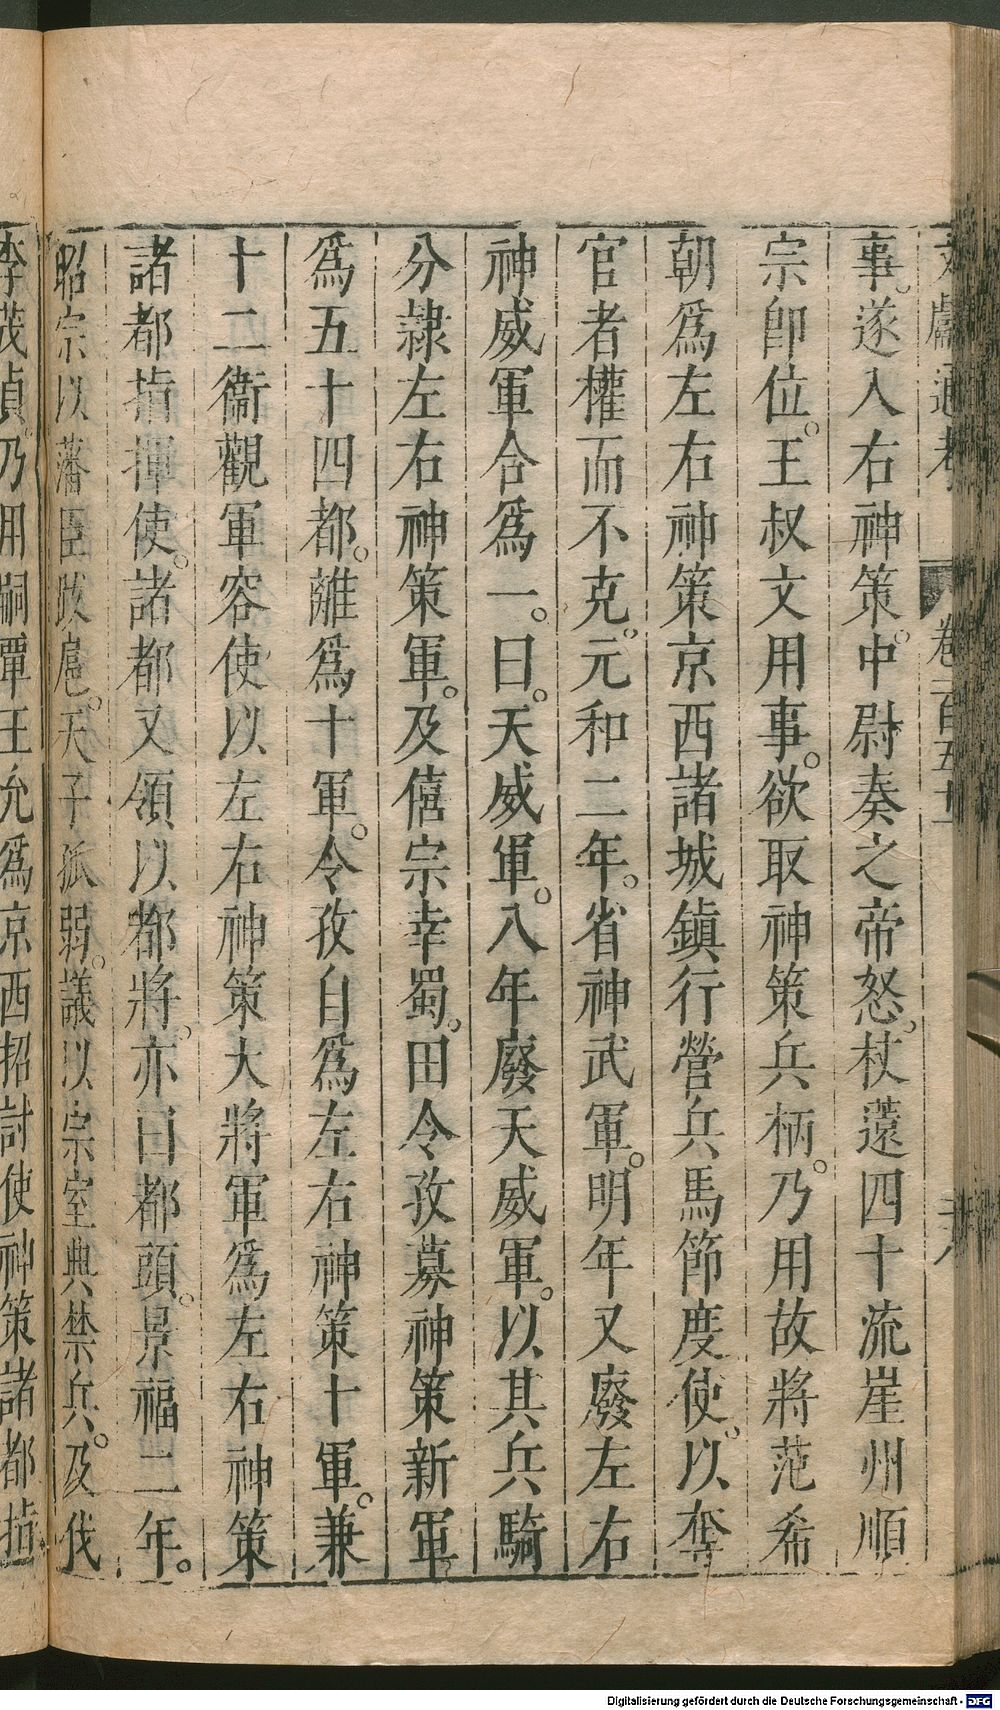 文獻通考 卷一百五十一 六
事。遂入右神策。中尉奏之帝怒。杖薳四十流崖州順
宗卽位。王叔文用事。欲取神策兵柄。乃用故將范希
朝爲左右神策京西諸城鎮行營兵馬節度使。以奪
官者權而不克。元和二年。省神武軍。明年又廢左右
神威軍合爲一。曰。天威軍。八年廢天威軍。以其兵騎
分隷左右神策軍。及僖宗幸蜀。田令孜募神策新軍
爲五十四都。離爲十軍。令孜自爲左右神策十軍。兼
十二衞觀軍容使以左右神策大將軍爲左右神策
諸都指揮使。諸都又領以都將。亦曰都頭。景福二年。
昭宗以藩臣跋扈。天子孤弱。議以宗室典禁兵。及伐
李茂貞。乃用嗣覃王允爲京西招討使神策諸都指
Digitalisierung gefördert durch die Deutsche Forschungsgemeinschaft - DFG